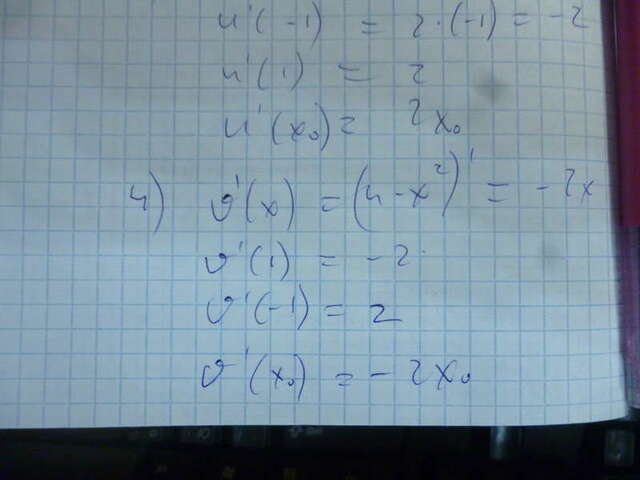 u'(-1) = 2·(-1) = -2
u'(1) = 2
u'(x₀) = 2x₀
4) v'(x) = (4-x²)' = -2x
v'(1) = -2
v'(-1) = 2
v'(x₀) = -2x₀